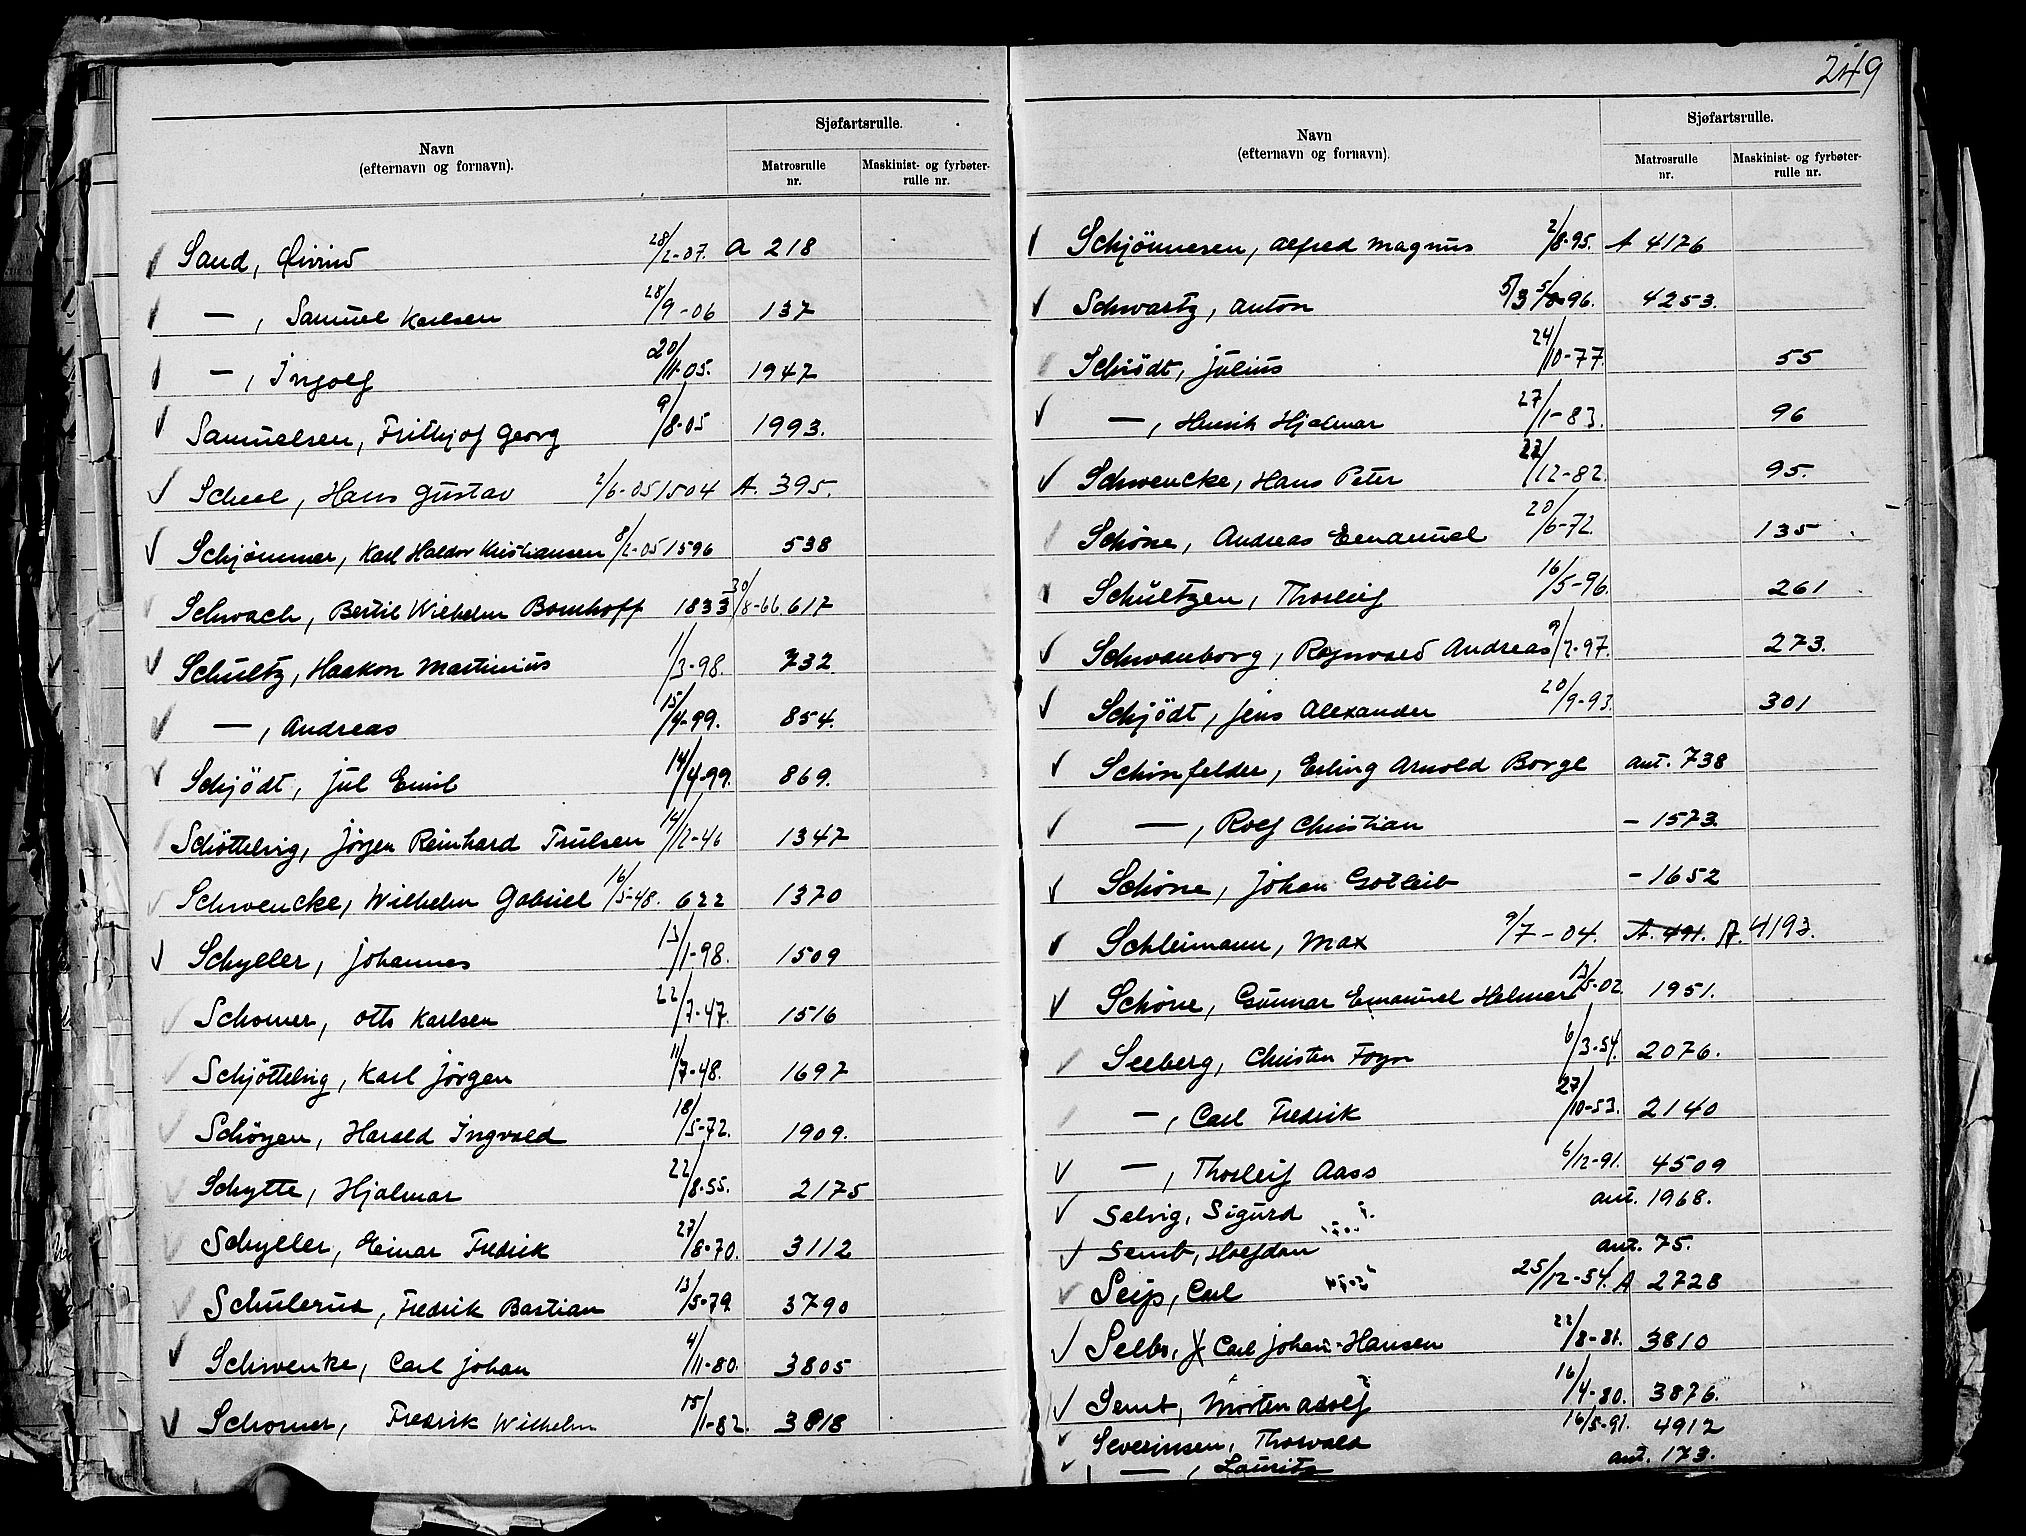 249
Navn
(efternavn og fornavn).
Sjøfartsrulle.
Matrosrulle nr.
Maskinist- og fyrbøter-rulle nr.
Sand, Øivind 28/2-07. A 218
— , Samuel Karlsen 28/9-06 137
— , Ingolf 20/11-05. 1947
Samuelsen, Frithjof Georg 9/8-05 1993.
Scheel, Hans Gustav 2/6-05 1504 A. 395.
Schjømmer, Karl Haldor Kristiansen 8/2-05 1596 538
Schwach, Bertil Wilhelm Bomhoff 1833 30/8-66 617
Schultz, Haakon Martinius 1/3-98. 732.
— , Andreas 15/4-99. 854.
Schjödt, Jul Emil 14/4-99. 869.
Schöttelvig, Jörgen Reinhard Trulsen 14/12-46 1347
Schwencke, Wilhelm Gabriel 16/5-48. 622 1370
Schyller, Johannes 13/1-98. 1509
Schomer, Otto Karlsen 22/7-47. 1516
Schjöttelvig, Karl Jörgen 11/7-48. 1697
Schöyen, Harald Ingvald 18/5-72. 1909.
Schytte, Hjalmar 22/8-55. 2175
Schyller, Heinar Fredrik 27/8-70. 3112
Schulerud, Fredrik Bastian 13/5-79. 3790
Schwenke, Carl Johan 4/11-80. 3805
Schomer, Fredrik Wilhelm 15/1-82. 3818
Navn
(efternavn og fornavn).
Sjøfartsrulle.
Matrosrulle nr.
Maskinist- og fyrbøter-rulle nr.
Schjönnesen, Alfred Magnus 2/8-95. A 4176
Schwartz, Anton 5/3 96. 4253.
Schiödt, Julius 24/10-77. 55
— , Henrik Hjalmar 27/1-83. 96
Schwencke, Hans Peter 22/12-82. 95.
Schöne, Andreas Emanuel 20/6-72. 135
Schultzen, Thorleif 16/5-96. 261
Schwanborg, Ragnvald Andreas 9/2-97. 273.
Schjödt, Jens Alexander 20/9-93. 301
Schönfelder, Erling Arnold Borge ant. 738
— , Rolf Christian - 1573.
Schöne, Johan Gotleib - 1652
Schleimann, Max 9/7-04. A. 491. A. 4193.
Schöne, Gunnar Emanuel Helmer 13/5-02. 1951.
Seeberg, Christen Fogn 6/3-54. 2076.
— , Carl Fredrik 27/10-53. 2140
— , Thorleif Aass 6/12-91. 4509
Selvig, Sigurd ant. 1968.
Semb, Halfdan ant. 75.
Seip, Carl 25/12-54. A 2728
Selbo, Carl Johan Hansen 22/8-81. 3810
Semb, Morten Adolf 16/4-80. 3876.
Severinsen, Thorvald 16/5-91. 4912
— , Lauritz ant. 173.